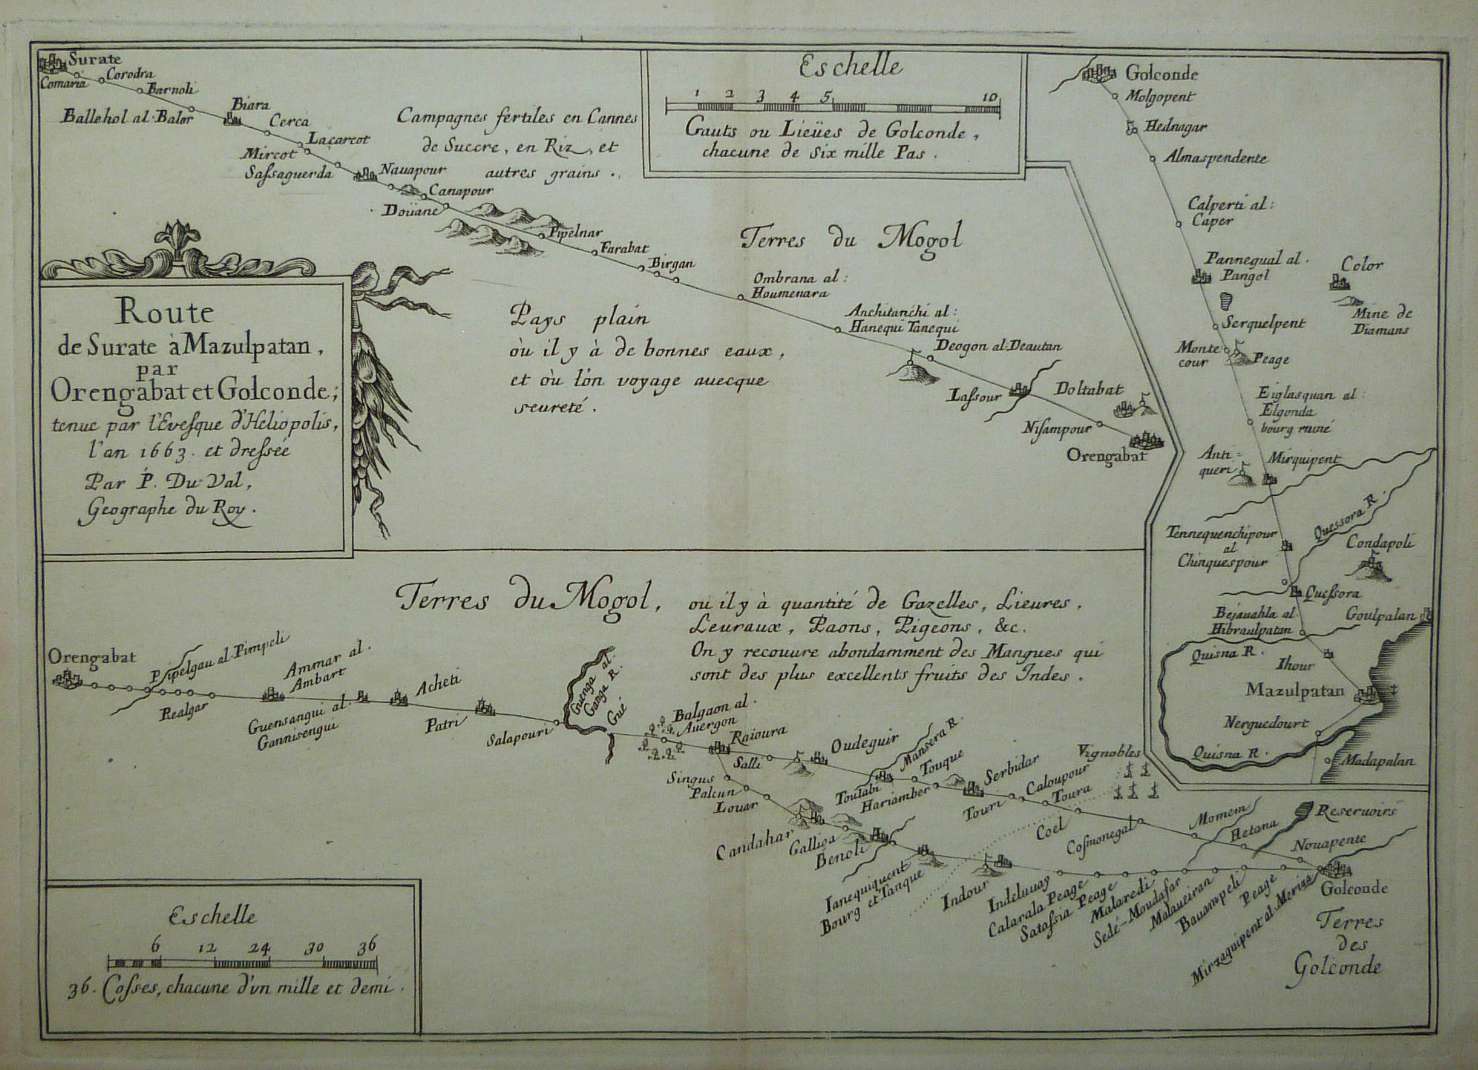 Surate
Comaria
Corodra
Barnoli
Ballehol al. Balor
Biara
Cerca
Lacarcot
Mircot
Sassaguerda
Nauapour
Canapour
Doüane
Campagnes fertiles en Cannes
de Succre, en Riz, et
autres grains.
Pipelnar
Farabat
Birgan
Ombrana al:
Houmenara
Anchitanchi al:
Hanequi Tanequi
Deogon al. Deautan
Lassour
Doltabat
Nisampour
Orengabat
Terres du Mogol
Pays plain
où il y à de bonnes eaux,
et où l'on voyage avecque
seureté.
Eschelle
1 2 3 4 5 10
Gauts ou Lieües de Golconde,
chacune de Six mille Pas.
Route
de Surate à Mazulpatan,
par
Orengabat et Golconde;
tenue par l'Evesque d'Heliopolis,
l'an 1663. et dressée
Par P. Du Val,
Geographe du Roy.
Golconde
Molgopent
Hednagar
Almaspendente
Calperti al:
Caper
Pannegual al.
Pangol
Color
Mine de
Diamans
Serquelpent
Monte
cour
Peage
Eiglasquan al:
Elgonda
bourg ruiné
Anti-
queri
Mirquipent
Tennequenchipour
al
Chinquespour
Quessora R.
Condapoli
Quessora
Bejauahla al
Hibraulpatan
Goulpalan
Quisna R.
Ihour
Mazulpatan
Nerguedourt
Quisna R.
Madapalan
Terres du Mogol, ou il y à quantité de Gazelles, Lieures,
Leuraux, Paons, Pigeons, &c.
On y recouure abondamment des Mangues qui
sont des plus excellents fruits des Indes.
Orengabat
Pipelgau al. Pimpeli
Realgar
Ammar al.
Ambart
Guensangui al.
Gannisengui
Acheti
Patri
Salapouri
Guenga al
Ganga R.
Gué
Balgaon al.
Auergon
Raioura
Salli
Oudeguir
Mansera R.
Toutabi
Touque
Hariamber
Serbidar
Touri
Caloupour
Toura
Vignobles
Coel
Cosmonegal
Momem
Hetana
Reservoirs
Nouapente
Golconde
Singus
Palcun
Louar
Candahar
Galliga
Benoli
Ianequiquent
Bourg et Tanque
Indour
Indeluuay
Calarala Peage
Satassia Peage
Malaredi
Sedé-Moudafar
Malaueiran
Bauampeli
Peage
Mirzaquipent al. Merisa
Terres
des
Golconde
Eschelle
6 12 24 30 36
36. Cosses, chacune d'vn mille et demi.